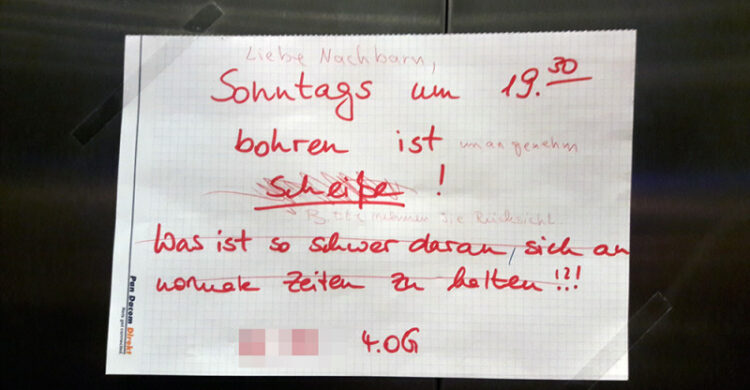 Liebe Nachbarn,
Sonntags um 19.30
bohren ist unangenehm
Scheiße !
Bitte nehmen Sie Rücksicht.
Was ist so schwer daran, sich an
normale Zeiten zu halten !?!
4.OG
Pan Dacom Direkt